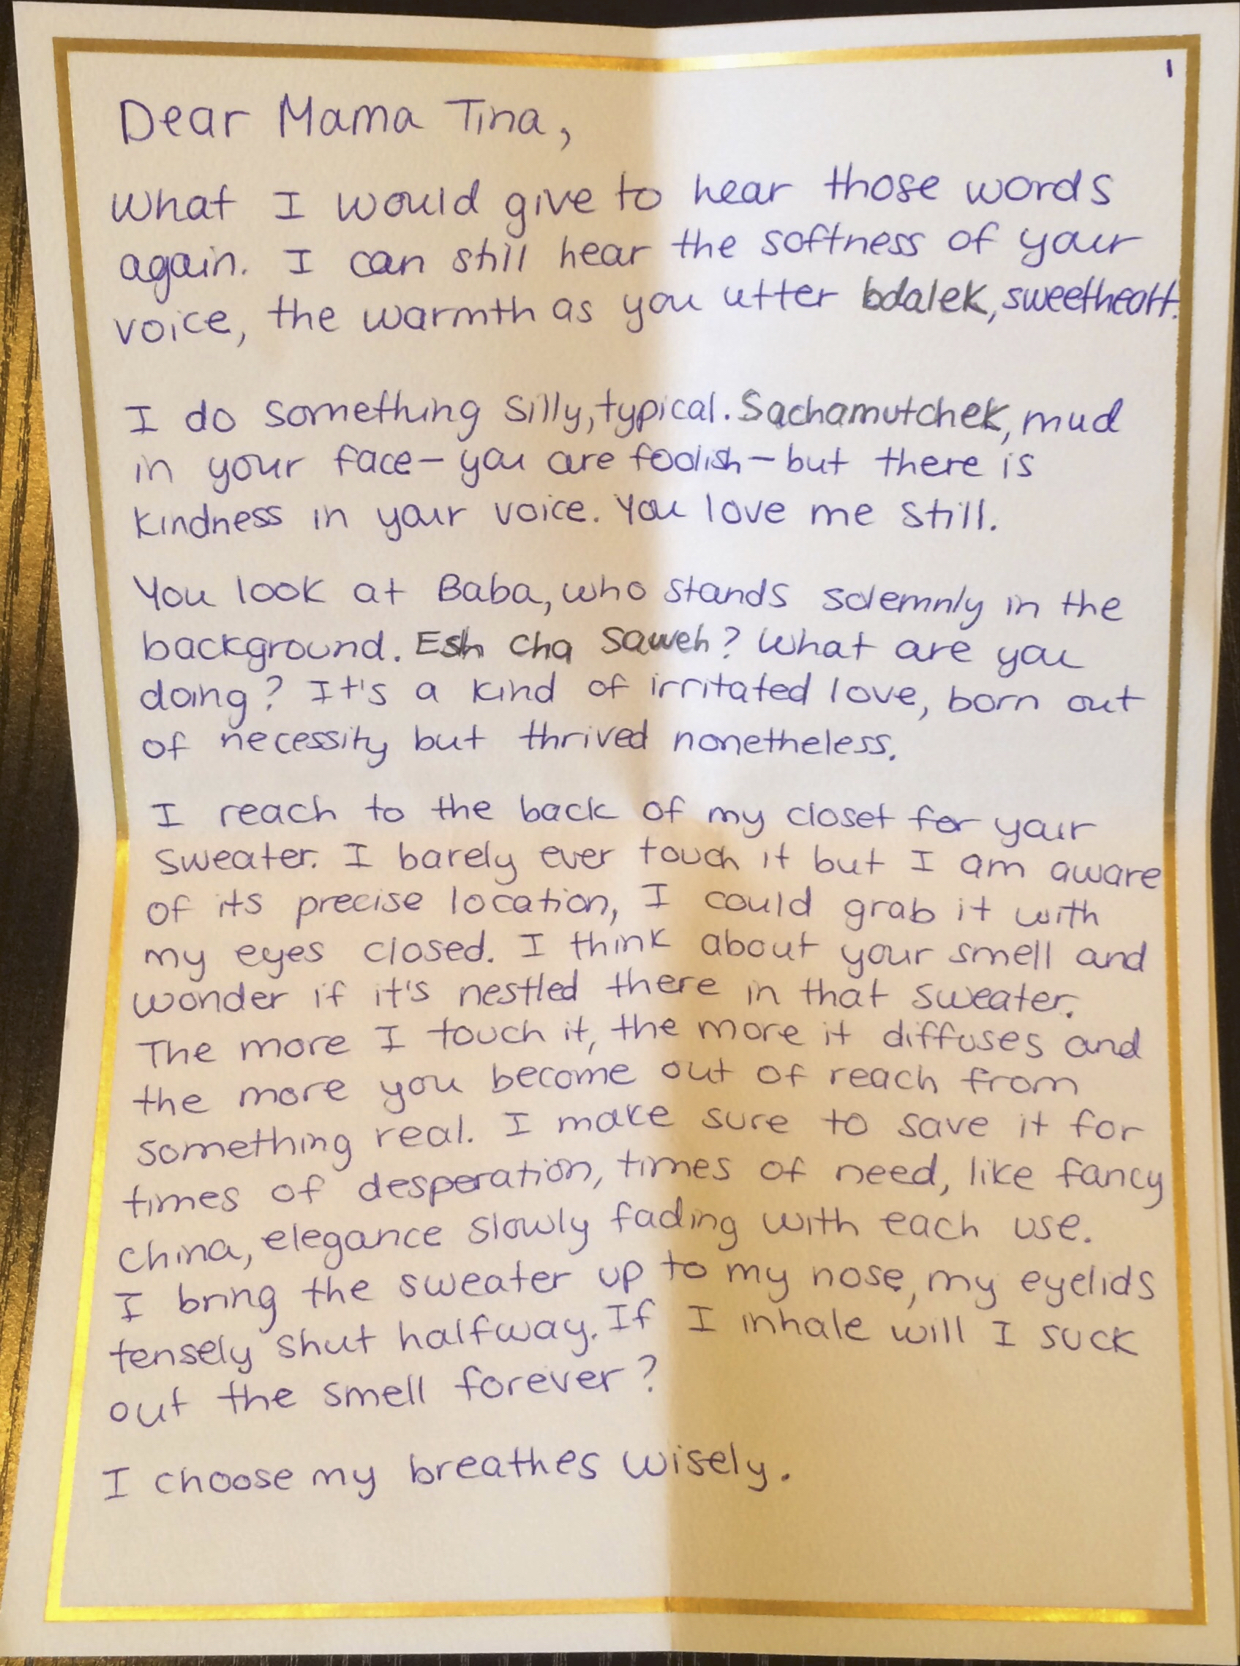 1
Dear Mama Tina,
What I would give to hear those words
again. I can still hear the softness of your
voice, the warmth as you utter bdalek, sweetheart.
I do something silly, typical. Sachamutchek, mud
in your face – you are foolish – but there is
kindness in your voice. You love me still.
You look at Baba, who stands solemnly in the
background. Esh cha saweh? What are you
doing? It's a kind of irritated love, born out
of necessity but thrived nonetheless.
I reach to the back of my closet for your
sweater. I barely ever touch it but I am aware
of its precise location, I could grab it with
my eyes closed. I think about your smell and
wonder if it's nestled there in that sweater.
The more I touch it, the more it diffuses and
the more you become out of reach from
something real. I make sure to save it for
times of desperation, times of need, like fancy
china, elegance slowly fading with each use.
I bring the sweater up to my nose, my eyelids
tensely shut halfway. If I inhale will I suck
out the smell forever?
I choose my breathes wisely.